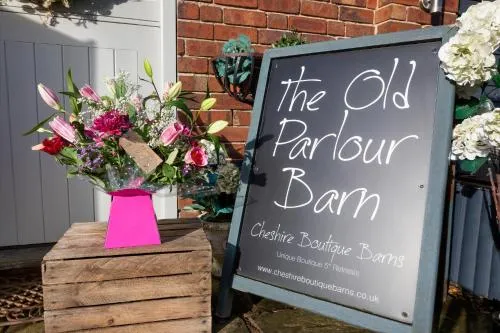 The Old
Parlour
Barn
Cheshire Boutique Barns
Unique Boutique 5* Retreats
www.cheshireboutiquebarns.co.uk